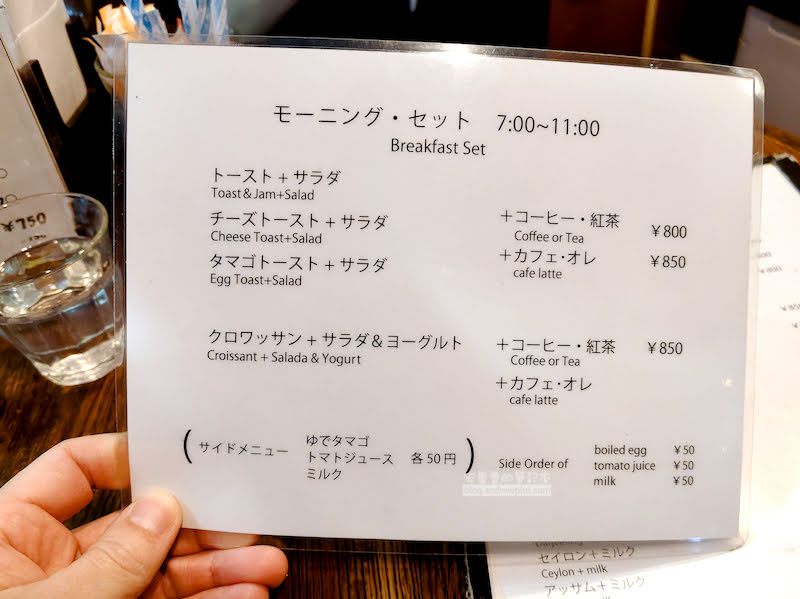 モーニング・セット 7:00~11:00
Breakfast Set
トースト + サラダ
Toast & Jam+Salad
チーズトースト + サラダ
Cheese Toast+Salad
タマゴトースト + サラダ
Egg Toast+Salad
+コーヒー・紅茶 ¥800
Coffee or Tea
+カフェ・オレ ¥850
cafe latte
クロワッサン + サラダ&ヨーグルト
Croissant + Salada & Yogurt
+コーヒー・紅茶 ¥850
Coffee or Tea
+カフェ・オレ
cafe latte
( サイドメニュー ゆでタマゴ
トマトジュース 各50円 )
ミルク
Side Order of boiled egg ¥50
tomato juice ¥50
milk ¥50
¥750
セイロン+ミルク
Ceylon + milk
アッサム+ミルク